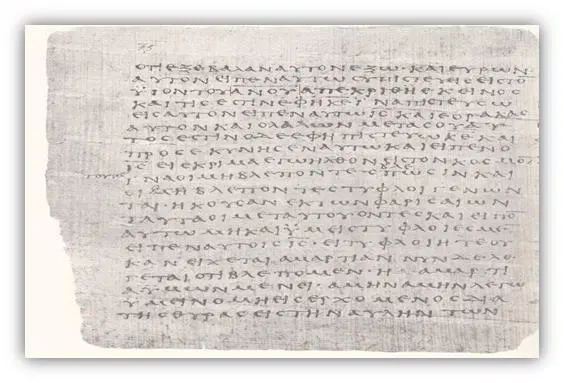 ΟΤΙ ΕΞΕΒΑΛΑΝ ΑΥΤΟΝ ΕΞΩ · ΚΑΙ ΕΥΡΩΝ
ΑΥΤΟΝ ΕΙΠΕΝ ΑΥΤΩ ϹΥ ΠΙϹΤΕΥΕΙϹ ΕΙϹ ΤΟ
ΥΙΟΝ ΤΟΥ ΑΝΟΥ ΑΠΕΚΡΙΘΗ ΕΚΕΙΝΟϹ
ΚΑΙ ΤΙϹ ΕϹΤΙΝ ΕΦΗ ΚΕ ΙΝΑ ΠΙϹΤΕΥϹΩ
ΕΙϹ ΑΥΤΟΝ ΕΙΠΕΝ ΑΥΤΩ ΙϹ ΚΑΙ ΕΟΡΑΚΑϹ
ΑΥΤΟΝ ΚΑΙ Ο ΛΑΛΩΝ ΜΕΤΑ ϹΟΥ ΑΥ
ΤΟϹ ΕϹΤΙΝ Ο ΔΕ ΕΦΗ ΠΙϹΤΕΥΩ ΚΕ ΚΑΙ
ΠΡΟϹΕΚΥΝΗϹΕΝ ΑΥΤΩ ΚΑΙ ΕΙΠΕΝ Ο
ΙϹ ΕΙϹ ΚΡΙΜΑ ΕΓΩ ΗΛΘΟΝ ΕΙϹ ΤΟΝ ΚΟϹΜΟ
ΙΝΑ ΟΙ ΜΗ ΒΛΕΠΟΝΤΕϹ ΚΑΙ
ΒΛΕΠΟΝΤΕϹ ΤΥΦΛΟΙ ΓΕΝΩΝ
ΤΑΙ · ΗΚΟΥϹΑΝ ΕΚ ΤΩΝ ΦΑΡΙϹΑΙΩΝ
ΤΑΥΤΑ ΟΙ ΜΕΤ ΑΥΤΟΥ ΟΝΤΕϹ ΚΑΙ ΕΙΠΟ
ΑΥΤΩ ΜΗ ΚΑΙ ΥΜΕΙϹ ΤΥΦΛΟΙ ΕϹΜΕ
ΕΙΠΕΝ ΑΥΤΟΙϹ ΙϹ · ΕΙ ΤΥΦΛΟΙ ΗΤΕ ΟΥ
ΚΑΝ ΕΙΧΕΤΑΙ ΑΜΑΡΤΙΑΝ ΝΥΝ ΔΕ ΛΕ
ΓΕΤΑΙ ΟΤΙ ΒΛΕΠΟΜΕΝ · Η ΑΜΑΡΤΙ
Α ΥΜΩΝ ΜΕΝΕΙ · ΑΜΗΝ ΑΜΗΝ ΛΕΓΩ
ΥΜΕΙΝ Ο ΜΗ ΕΙϹΕΡΧΟΜΕΝΟϹ ΔΙΑ
ΤΗϹ ΘΥΡΑϹ ΕΙϹ ΤΗΝ ΑΥΛΗΝ ΤΩΝ